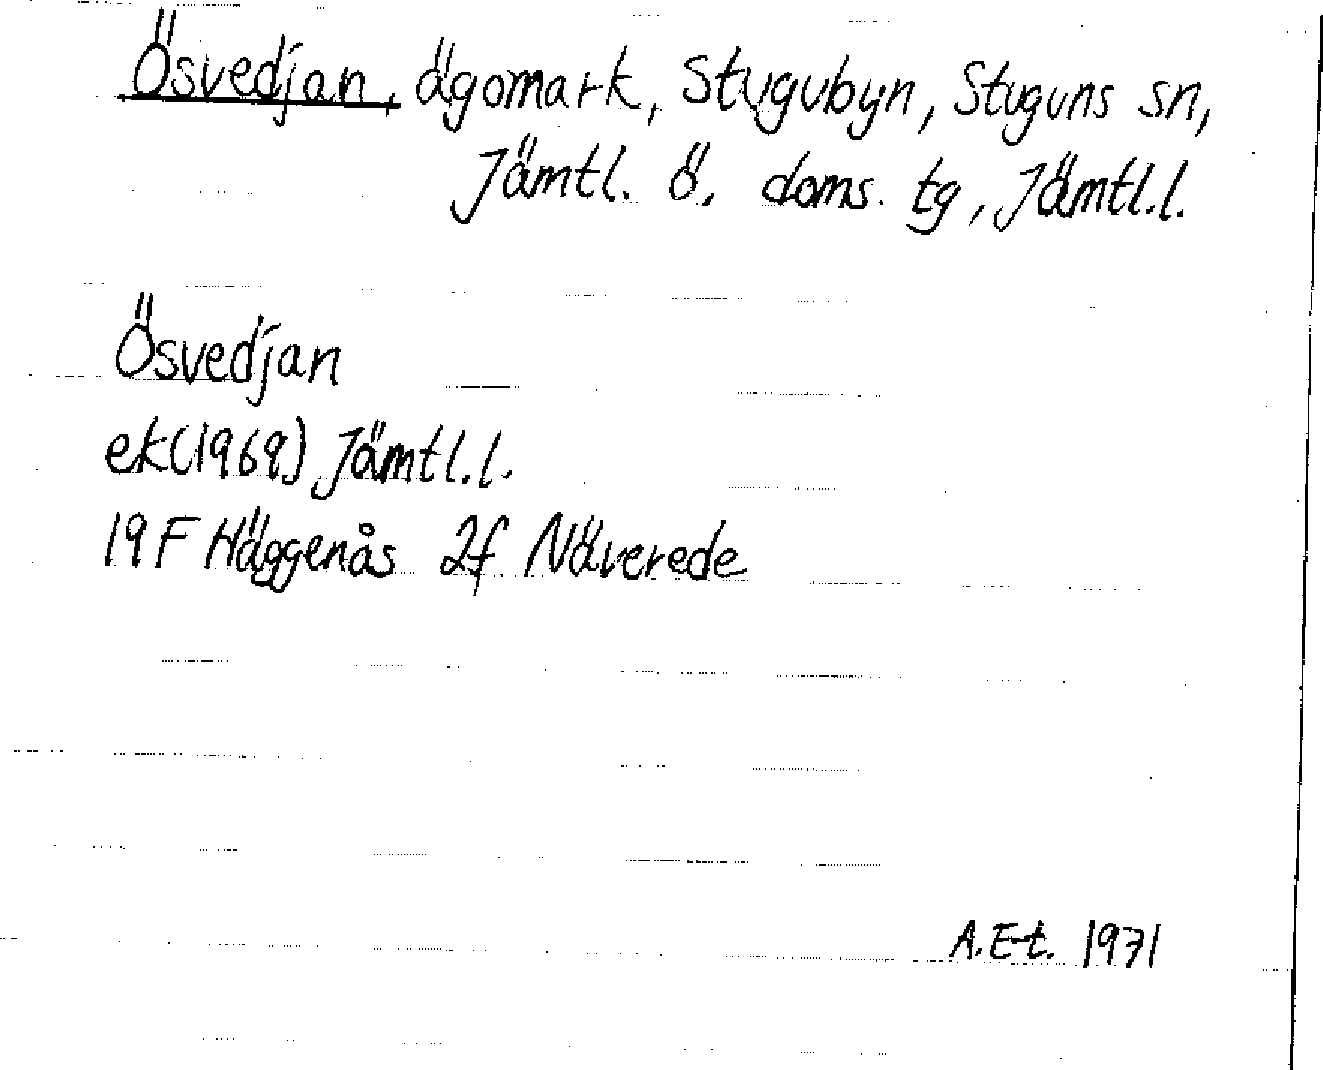 Ösvedjan, ägomark, Stugubyn, Stuguns sn,
Jämtl. ö. doms. tg, Jämtl.l.
Ösvedjan
ek(1969) Jämtl.l.
19F Häggenås 2f Näverede
A.E-t. 1971